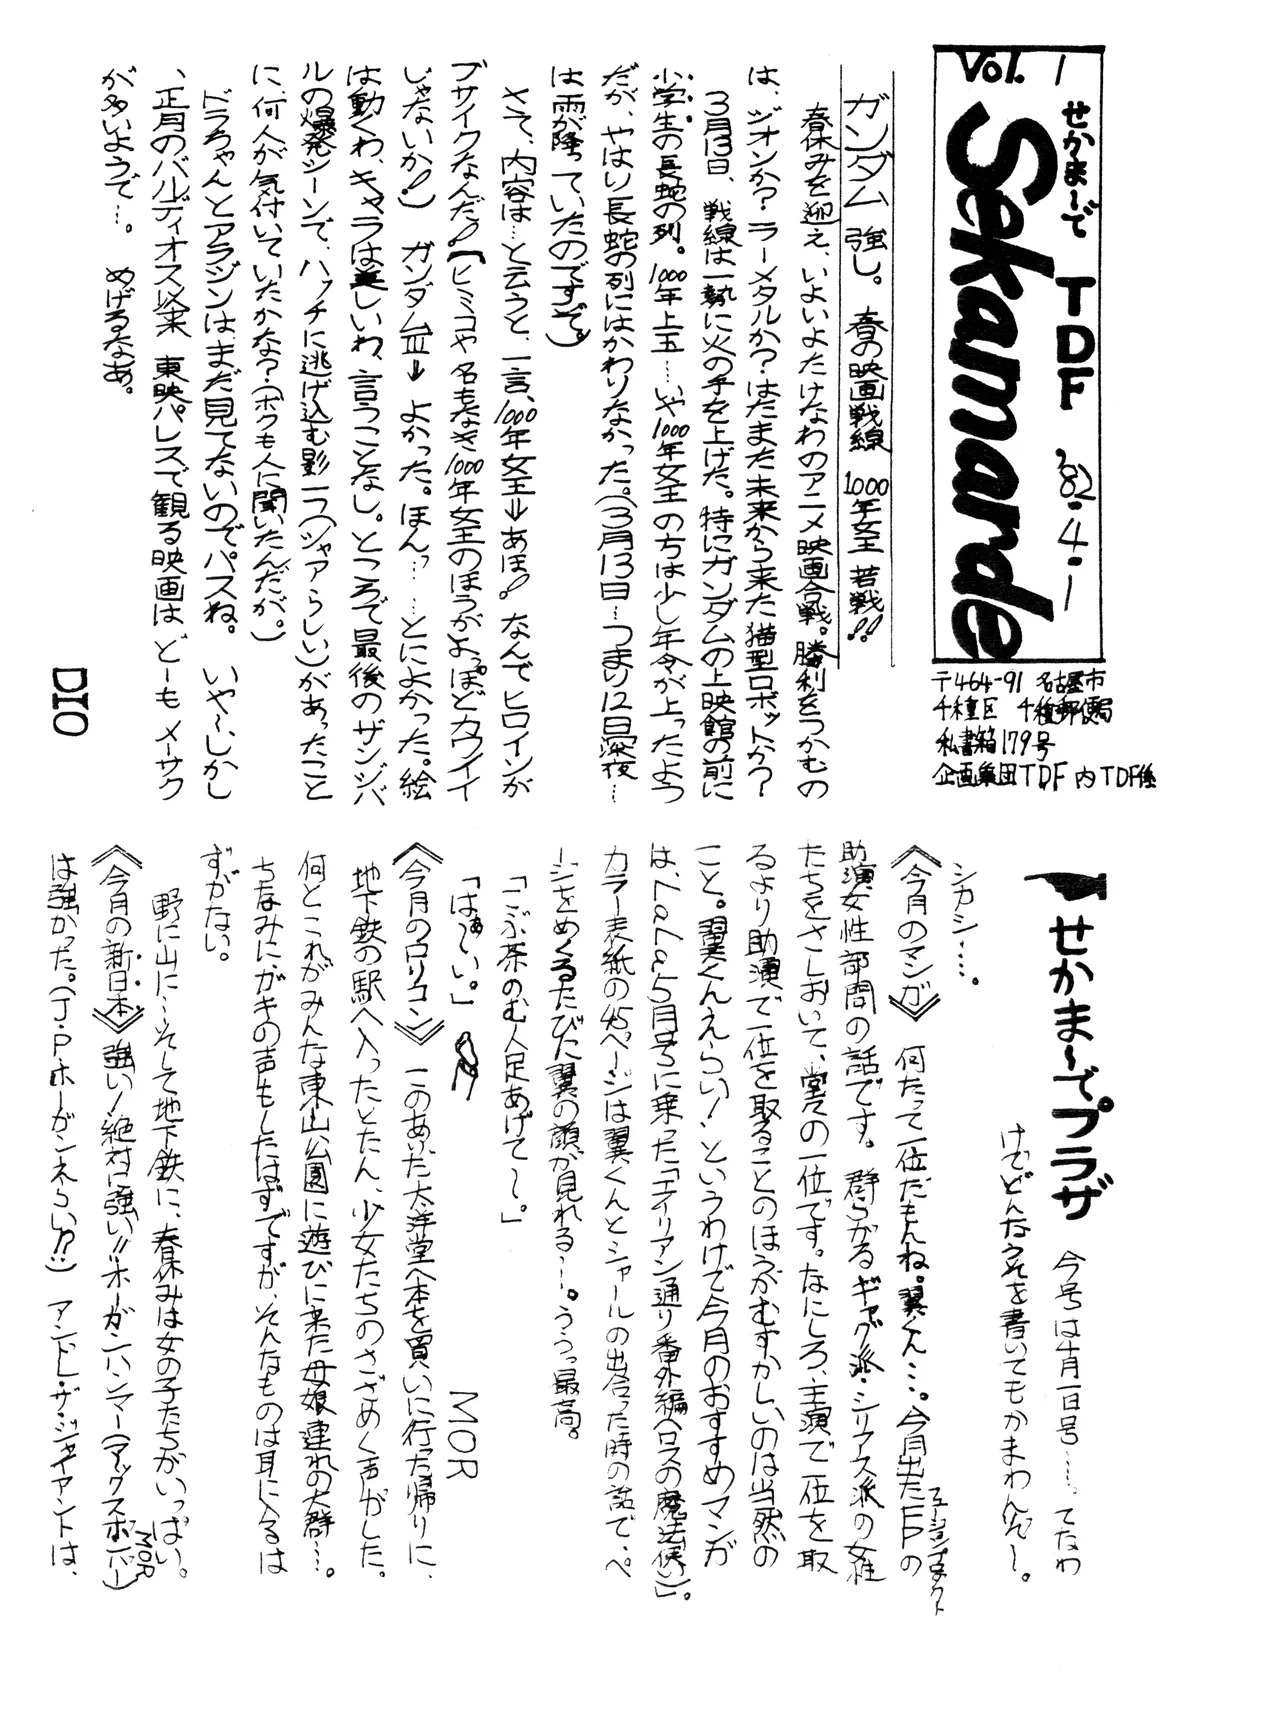 Vol. 1
せかま〜で TDF '82-4-1
Sekamarde
〒464-91 名古屋市
千種区 千種郵便局
私書箱179号
企画集団TDF内TDF係
ガンダム強し。春の映画戦線 1000年女王 苦戦!!
春休みを迎え、いよいよたけなわのアニメ映画合戦。勝利をつかむの
は、ジオンか？ラーメタルか？はたまた未来から来た猫型ロボットか？
3月13日、戦線は一勢に火の手を上げた。特にガンダムの上映館の前に
小学生の長蛇の列。1000年上玉…いや1000年女王の方は少し年令が上ったよう
だが、やはり長蛇の列にはかわりなかった。(3月13日…つまり12日深夜…
は雨が降っていたのですぞ。)
さて、内容は…と云うと、一言、1000年女王→あほ！なんでヒロインが
ブサイクなんだ！【ヒミコや名もなき1000年女王のほうがよっぽどカワイイ
じゃないか！) ガンダムⅢ→よかった。ほんっ……とによかった。絵
は動くわ、キャラは美しいわ、言うことなし。ところで最後のザンジバ
ルの爆発シーンで、ハッチに逃げ込む影一つ(シャアらしい)があったこと
に、何人が気付いていたかな？(ボクも人に聞いたんだが。)
ドラちゃんとアラジンは、まだ見てないのでパスね。 いや〜、しかし
、正月のバルディオス以来 東映パレスで観る映画は どーもメーサク
が多いようで…。 めげるなあ。
DIO
せかま〜でプラザ
今号は4月1日号……てなわ
けでどんなうそを書いてもかまわんぞ〜。
シカシ……。
《今月のマンガ》 何たって一位だもんね。翼くん…。今月出たFPの
フュージョンプロダクト
助演女性部門の話です。群らがるギャグ派・シリアス派の女性
たちをさしおいて、堂々の一位です。なにしろ、主演で一位を取
るより助演で一位を取ることのほうがむずかしいのは当然の
こと。翼くんえらい！というわけで今月のおすすめマンガ
は、LaLa5月号に乗った「エイリアン通り番外編〈ロスの魔法使い〉」。
カラー表紙の45ページは翼くんとシャールの出合った時の話で、ペ
ージをめくるたびに翼の顔が見れる〜。ううっ最高。
「こぶ茶のむ人足あげて〜。」
「はぁ〜い。」
MOR
《今月のロリコン》 一のあいだ太洋堂へ本を買いに行った帰りに、
地下鉄の駅へ入ったとたん、少女たちのさざめく声がした。
何とこれがみんな東山公園に遊びに来た母娘連れの大群…。
ちなみにガキの声もしたはずですが、そんなものは耳に入るは
ずがない。
野に山に…そして地下鉄に、春休みは女の子たちがいっぱい。
MOR
《今月の新日本》強い！絶対に強い!!ホーガンハンマー(アックスボンバー)
は強かった。(J・Pホーガンえらい!?) アンドレ・ザ・ジャイアントは、